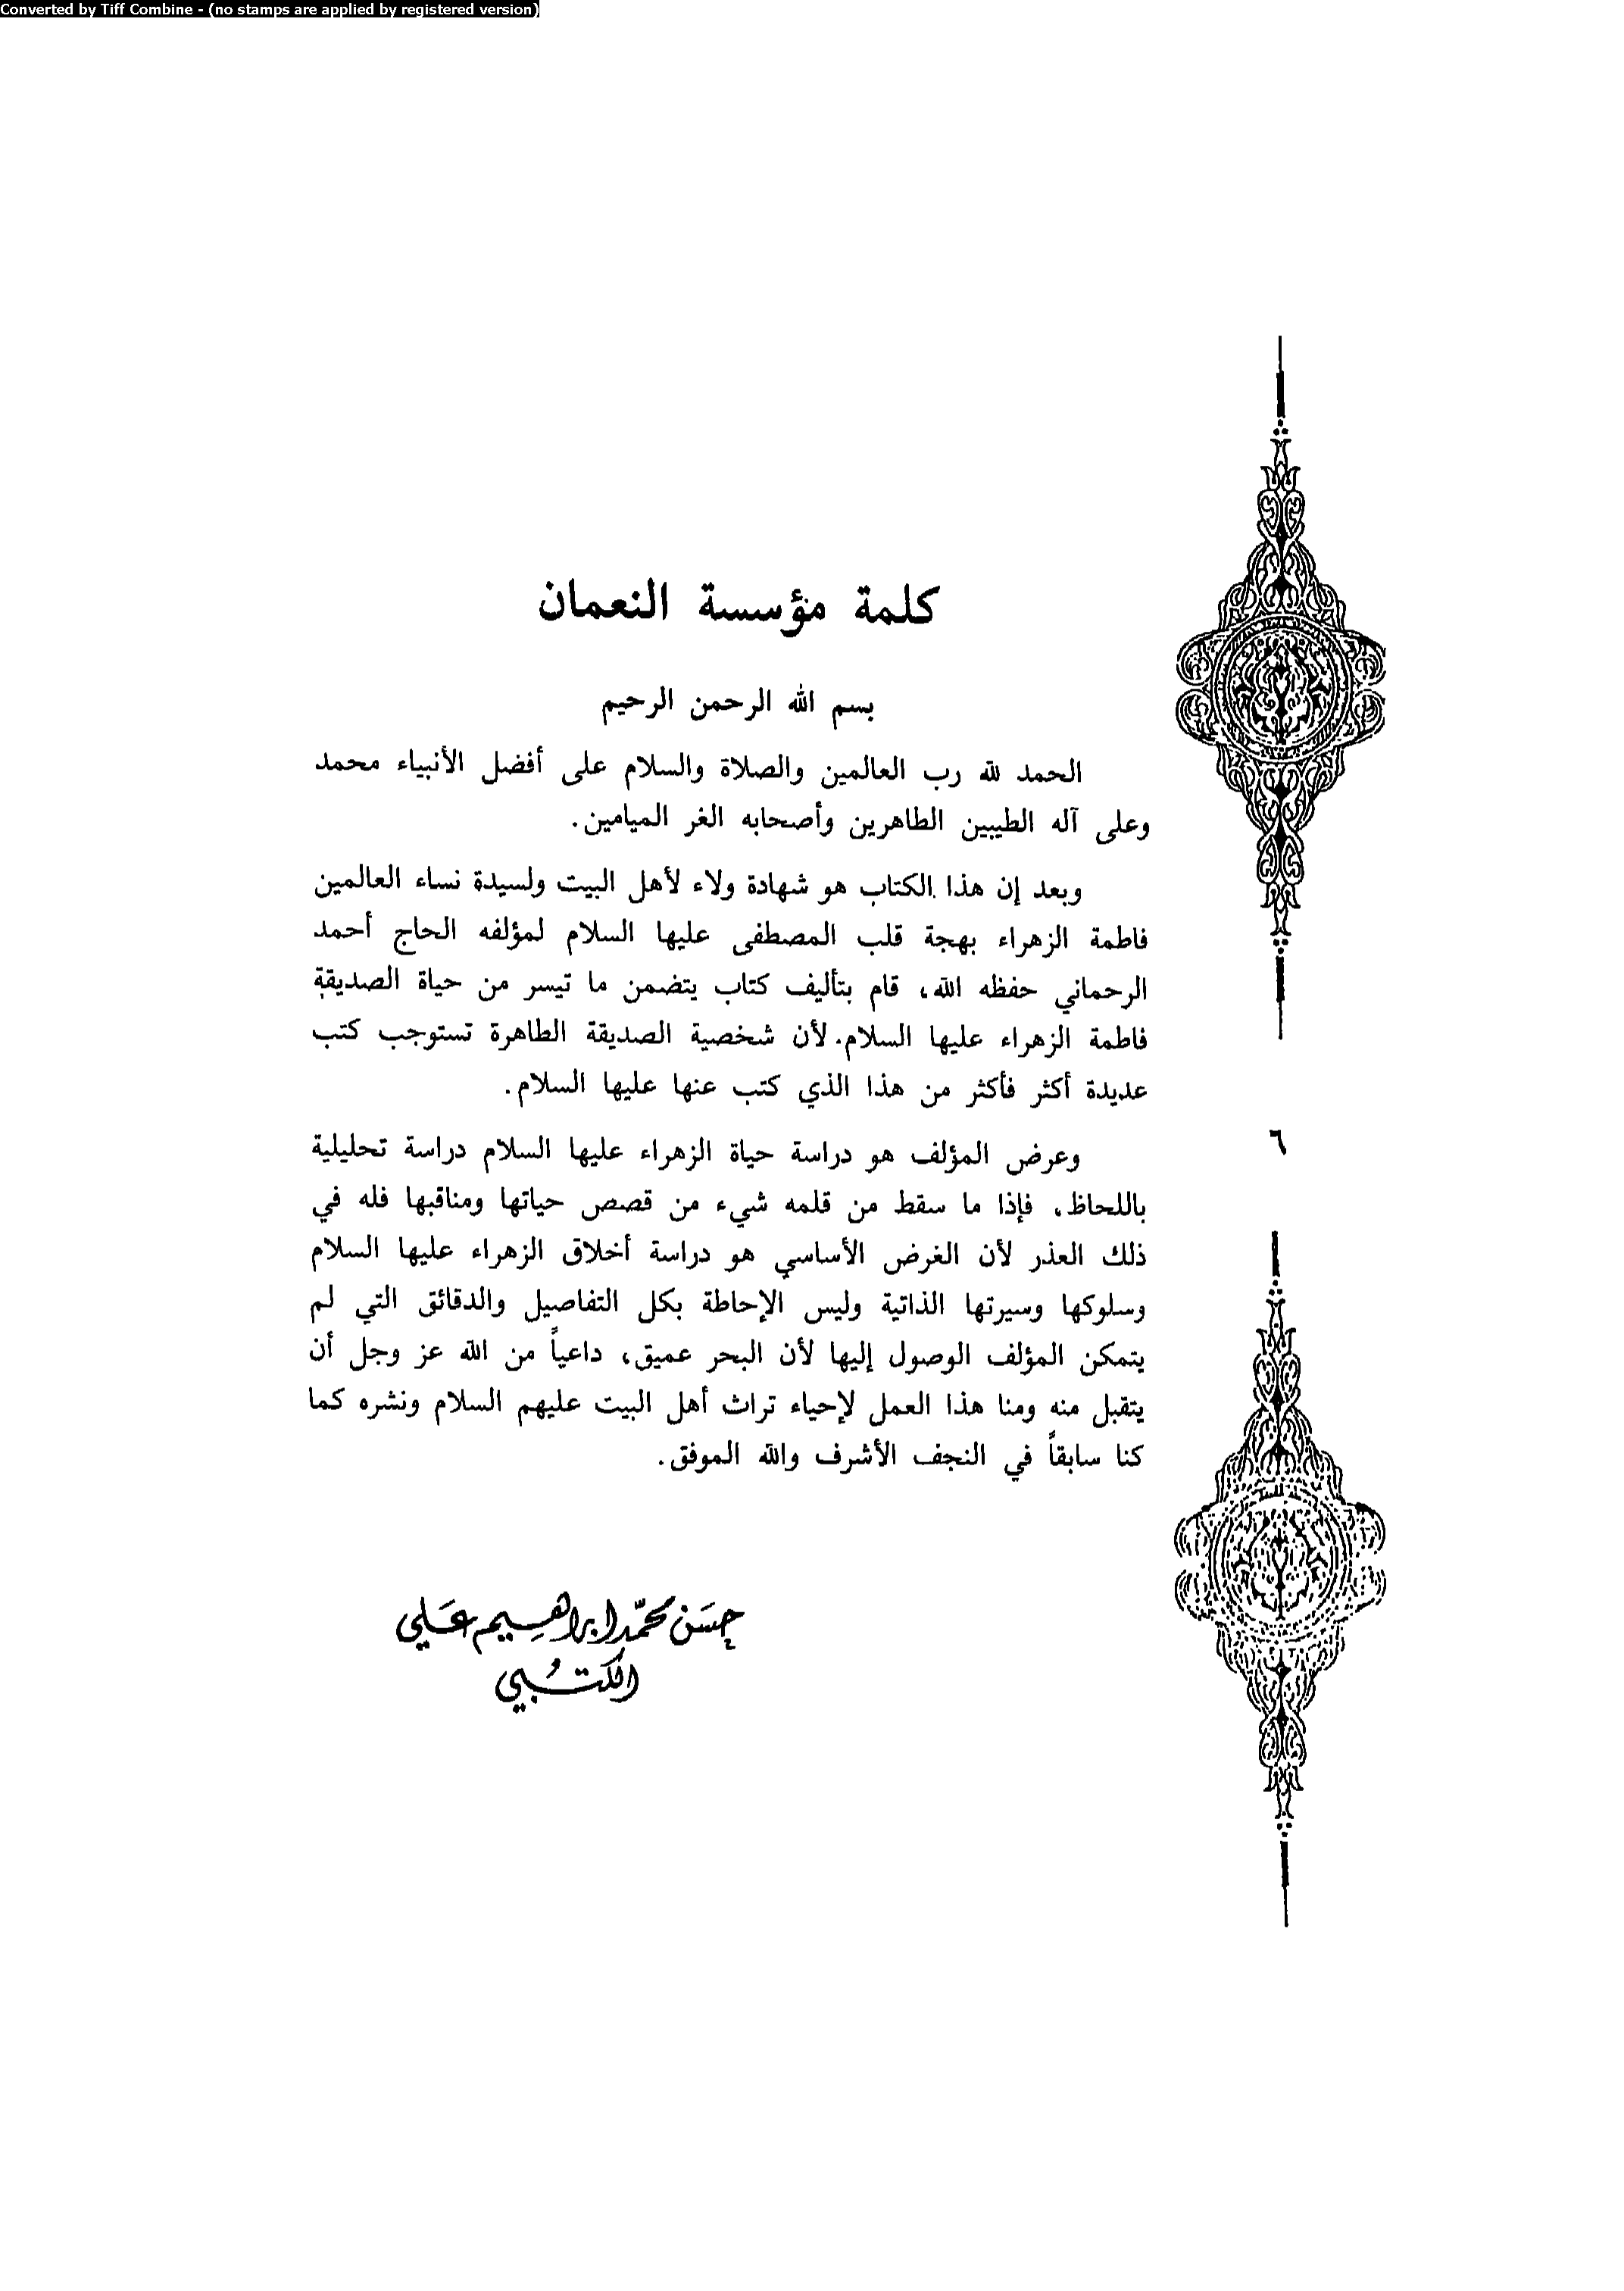 Converted by Tiff Combine - (no stamps are applied by registered version)
كلمة مؤسسة النعمان
بسم الله الرحمن الرحيم
الحمد لله رب العالمين والصلاة والسلام على أفضل الأنبياء محمد
وعلى آله الطيبين الطاهرين وأصحابه الغر الميامين.
وبعد إن هذا الكتاب هو شهادة ولاء لأهل البيت ولسيدة نساء العالمين
فاطمة الزهراء بهجة قلب المصطفى عليها السلام لمؤلفه الحاج أحمد
الرحماني حفظه الله، قام بتأليف كتاب يتضمن ما تيسر من حياة الصديقة
فاطمة الزهراء عليها السلام. لأن شخصية الصديقة الطاهرة تستوجب كتب
عديدة أكثر فأكثر من هذا الذي كتب عنها عليها السلام.
٦
وعرض المؤلف هو دراسة حياة الزهراء عليها السلام دراسة تحليلية
باللحاظ، فإذا ما سقط من قلمه شيء من قصص حياتها ومناقبها فله في
ذلك العذر لأن الغرض الأساسي هو دراسة أخلاق الزهراء عليها السلام
وسلوكها وسيرتها الذاتية وليس الإحاطة بكل التفاصيل والدقائق التي لم
يتمكن المؤلف الوصول إليها لأن البحر عميق، داعياً من الله عز وجل أن
يتقبل منه ومنا هذا العمل لإحياء تراث أهل البيت عليهم السلام ونشره كما
كنا سابقاً في النجف الأشرف والله الموفق.
حسَن محمّد ابراهيم عَلي
الكتُبي